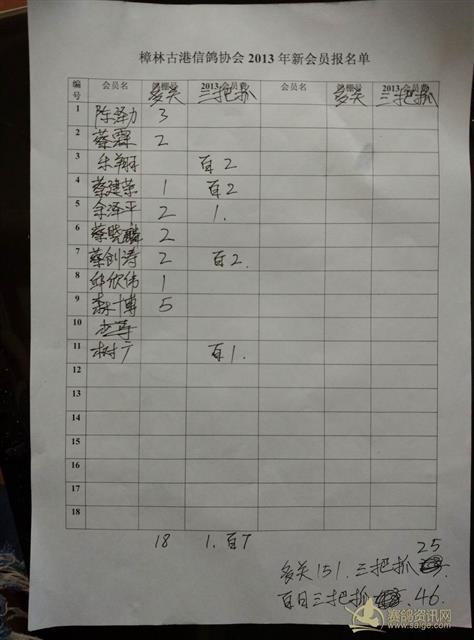 樟林古港信鸽协会 2013 年新会员报名单
编号 会员名 鸽棚号 多关 2013 会员费 三把抓 会员名 鸽棚号 多关 2013 会员费 三把抓
1 陈泽力 3
2 蔡霖 2
3 朱翔 百2
4 蔡建荣 1 百2
5 余泽平 2 1.
6 蔡晓麟 2
7 蔡创涛 2 百2.
8 邱欣伟 1
9 森博 5
10
11 树广 百1.
12
13
14
15
16
17
18
18 1. 百7
25
多关151. 三把抓
百日三把抓 46.
赛鸽资讯网
www.saige.com